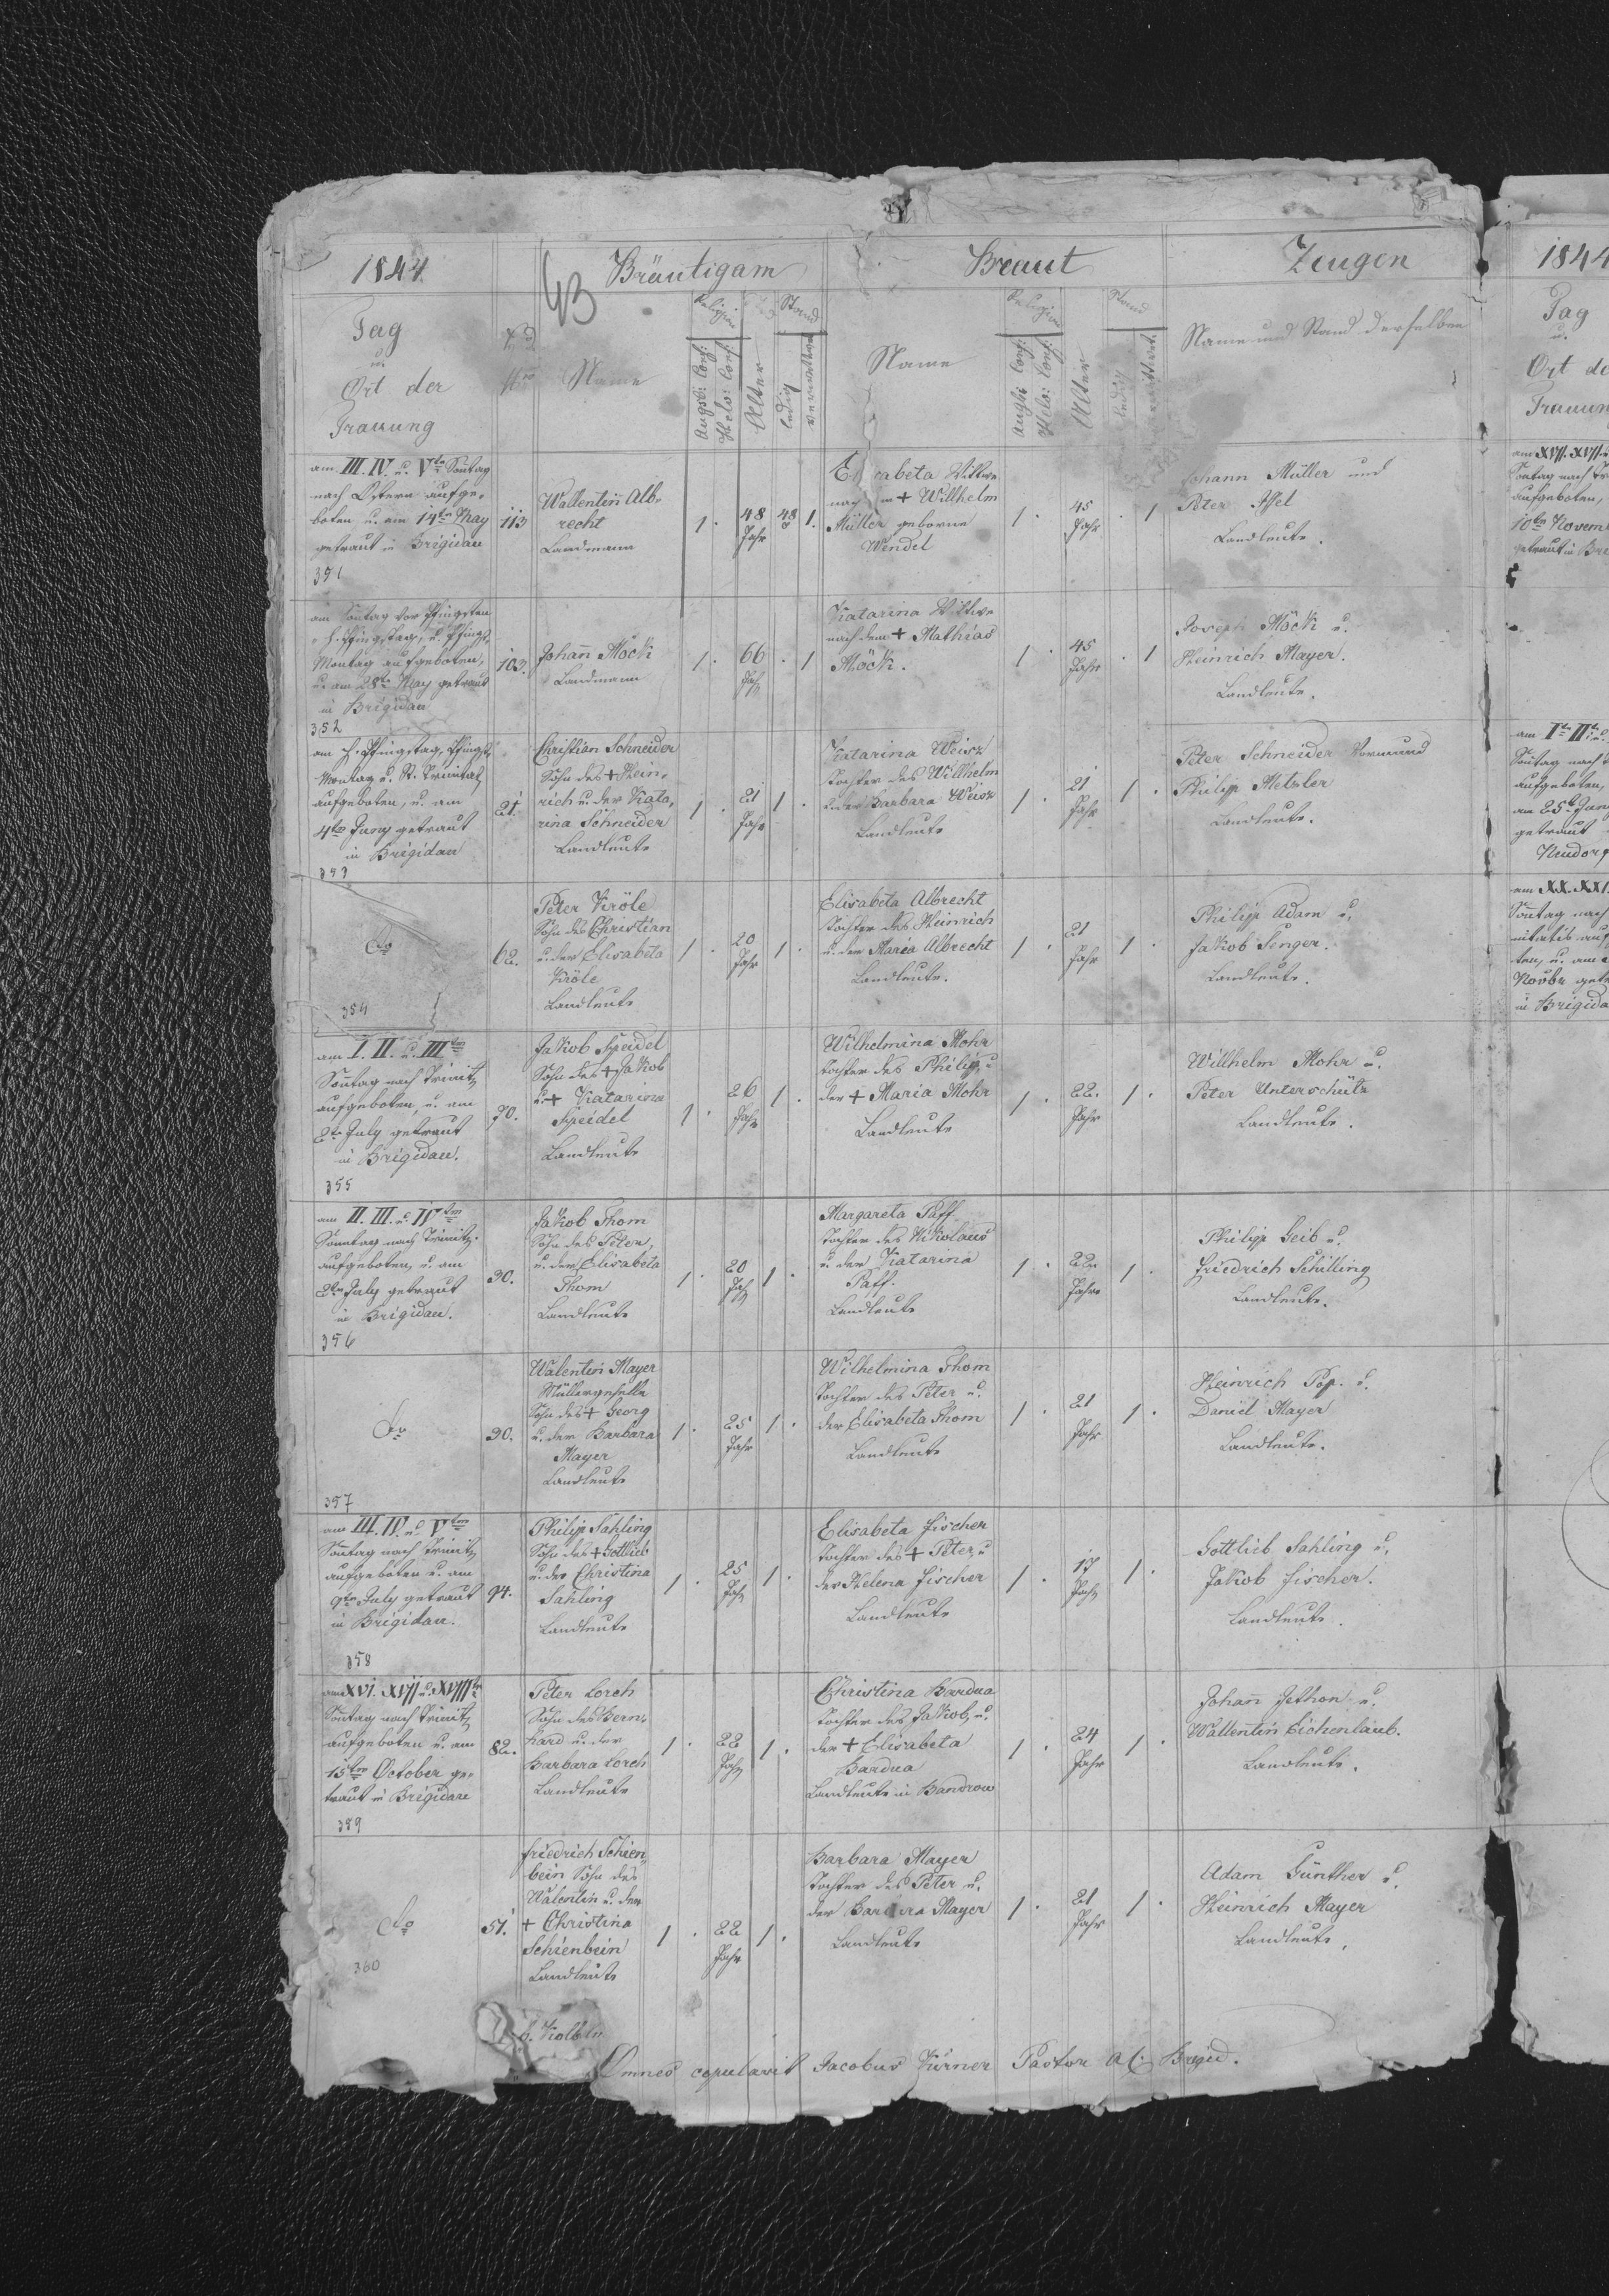 1844
43
Bräutigam
Braut
Zeugen
Tag
u.
Ort der
Trauung
Nro
Name
Religion
Augsb: Conf:
Helv: Conf:
Alter
Stand
ledig
verwittwet
Name
Religion
Augsb: Conf:
Helv: Conf:
Alter
Stand
ledig
verwittwet
Name und Stand derselben
am III. IV. u. Vten Sontag
nach Ostern aufge-
boten u. am 14ten May
getraut in Brigidau
351
113
Wallentin Alb-
recht
Landmann
1. 48 Jahr 48 1.
Wittwe
nach + Willhelm
Müller geborne
Wendel
1. 45 Jahr . 1
Johann Müller und
Peter Issel
Landleute.
am Sontag vor Pfingsten
h. Pfingstag, u. Pfingst-
Montag aufgeboten,
u. am 28ten May getraut
in Brigidau
352
103.
Johann Möck
Landmann
1. 66 Jahr . 1
Katarina Wittwe
nach dem + Mathias
Möck.
1. 45 Jahr . 1
Joseph Möck u.
Heinrich Mayer.
Landleute.
am h. Pfingstag, Pfingst-
Montag u. St. Trinitat
aufgeboten, u. am
4ten Juny getraut
in Brigidau
353
21.
Christian Schneider
Sohn des + Hein-
rich u. der Kata-
rina Schneider
Landleute
1. 21 Jahr 1.
Katarina Weisz
Tochter des Willhelm
u. der Barbara Weisz
Landleute
1. 21 Jahr 1.
Peter Schneider Vormund
Philipp Metzler
Landleute.
do
354
62.
Peter Kröle
Sohn des Christian
u. der Elisabeta
Kröle
Landleute
1. 20 Jahr 1.
Elisabeta Albrecht
Tochter des Heinrich
u. der Maria Albrecht
Landleute.
1. 21 Jahr 1.
Philipp Adam u.
Jakob Senger.
Landleute.
am I. II. u. IIIten
Sontag nach Trinit
aufgeboten, u. am
2ten July getraut
in Brigidau.
355
70.
Jakob Speidel
Sohn des + Jakob
u. + Katarina
Speidel
Landleute
1. 26 Jahr 1.
Wilhelmina Mohr
Tochter des Philip, u
der + Maria Mohr
Landleute
1. 22. Jahr 1.
Willhelm Mohr u.
Peter Unterschütz
Landleute.
am II. III. u. IVten
Sonntag nach Trinit.
aufgeboten, u. am
2ten July getraut
in Brigidau.
356
30.
Jakob Thom
Sohn des Peter,
u. der Elisabeta
Thom
Landleute
1. 20 Jahr 1.
Margareta Paff
Tochter des Nikolaus
u. der Katarina
Paff.
Landleute
1. 22 Jahre 1.
Philipp Seib u.
Friedrich Schilling
Landleute.
do
357
30.
Walentin Mayer
Müllergeselle
Sohn des + Georg
u. der Barbara
Mayer
Landleute
1. 25 Jahr 1.
Wilhelmina Thom
Tochter des Peter u
der Elisabeta Thom
Landleute
1. 21 Jahr 1.
Heinrich Pop. u.
Daniel Mayer
Landleute.
am III. IV. u. Vten
Sontag nach Trinit
aufgeboten u. am
9ten July getraut
in Brigidau.
358
94.
Philip Sahling
Sohn des + Gottlieb
u. der Christina
Sahling
Landleute
1. 25 Jahr 1.
Elisabeta Fischer
Tochter des + Peter, u
der Helena Fischer
Landleute
1. 17 Jahr 1.
Gottlieb Sahling u.
Jakob Fischer.
Landleute.
am XVI. XVII u. XVIIIten
Sontag nach Trinit
aufgeboten u. am
15ten October ge-
traut in Brigidau
359
82.
Peter Lorch
Sohn des Bern-
hard u. der
Barbara Lorch
Landleute
1. 22 Jahr 1.
Christina Bardua
Tochter des Jakob, u.
der + Elisabeta
Bardua
Landleute in Bandrow
1. 24 Jahr 1.
Johann Jethon u.
Wallentin Eichenlaub.
Landleute.
do
360
51.
Friedrich Schien-
bein Sohn des
Walentin u. der
+ Christina
Schienbein
Landleute
1. 22 Jahr 1.
Barbara Mayer
Tochter des Peter u.
der Barbara Mayer
Landleute
1. 21 Jahr 1.
Adam Günther u.
Heinrich Mayer
Landleute.
Omnes copulavit Jacobus Zürner Pastor A.C. Brigid.
1844
Tag
u.
Ort de
Trauun
am XVI. XVII.
Sontag nach Tr
aufgeboten,
10ten Novem
getraut in Bri
am Iten IIten
Sontag nach
aufgeboten,
am 25ten
getraut
Neudorf
am XX. XXI.
Sontag nach
nitatis auf
ten, u. am
Novbr getr
in Brigida